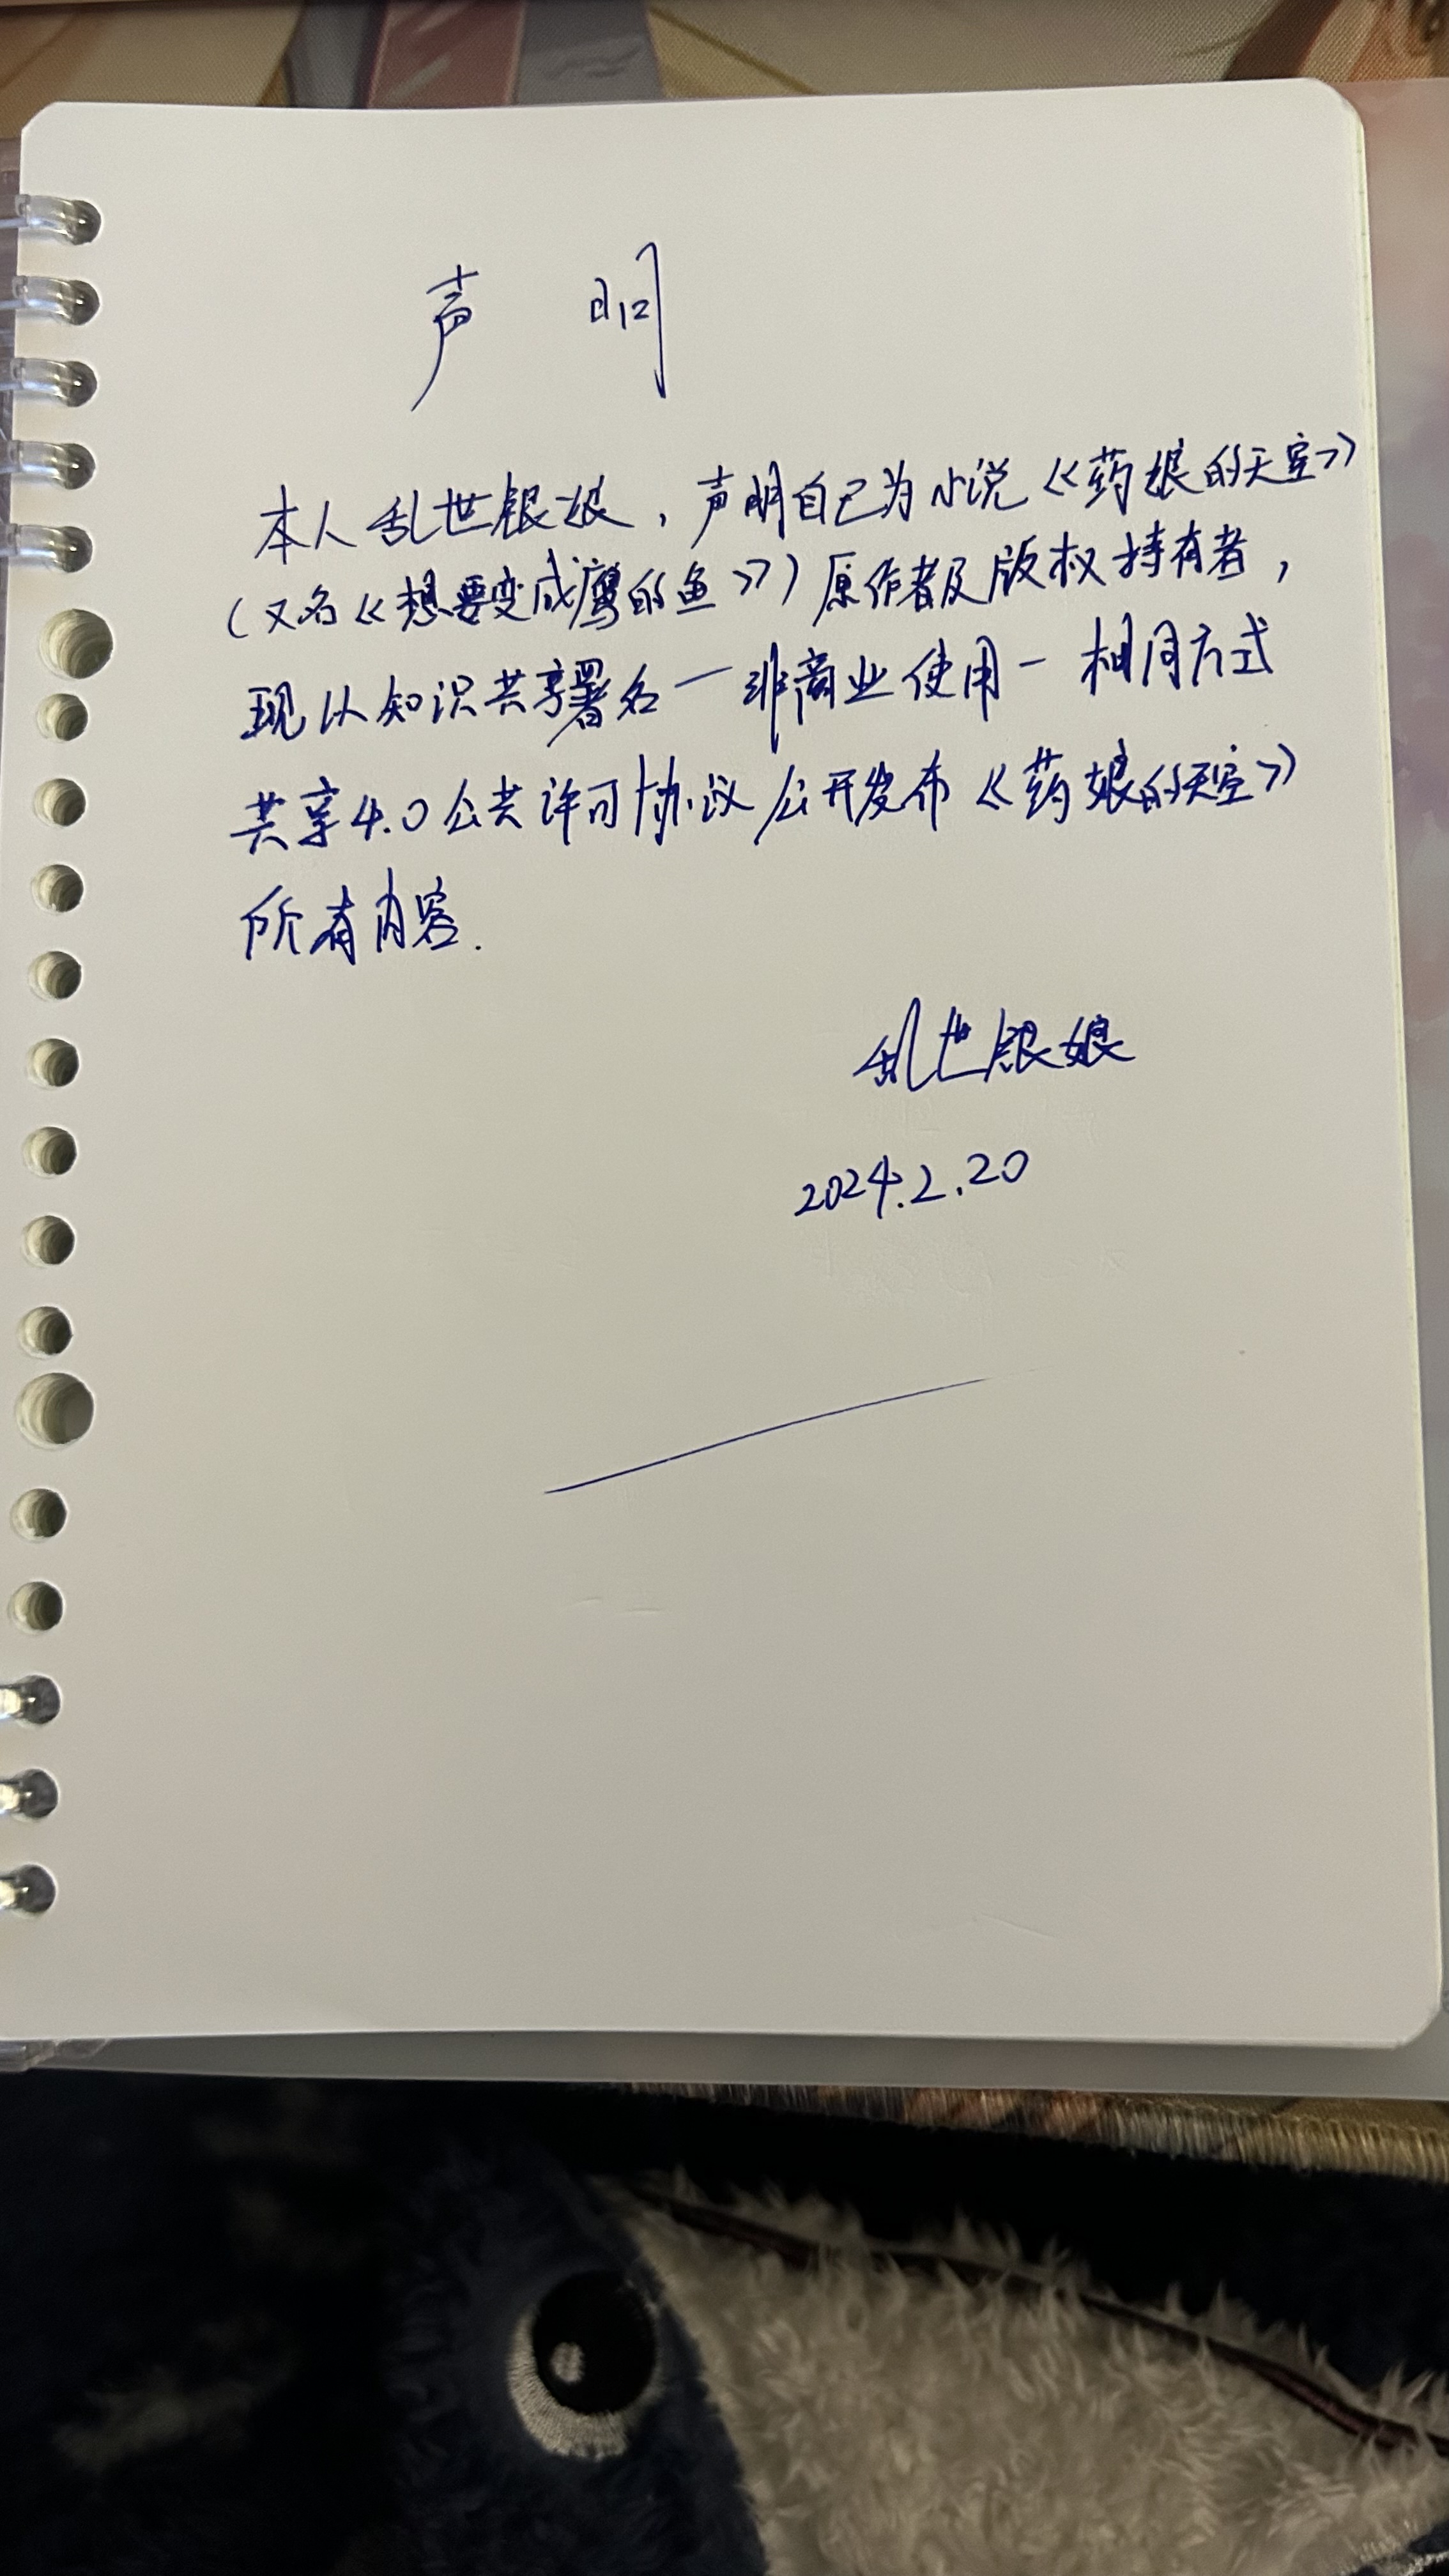 声 明
本人乱世银娘，声明自己为小说《药娘的天空》
（又名《想要变成鹰的鱼》）原作者及版权持有者，
现以知识共享署名－非商业使用－相同方式
共享4.0公共许可协议公开发布《药娘的天空》
所有内容.
乱世银娘
2024.2.20